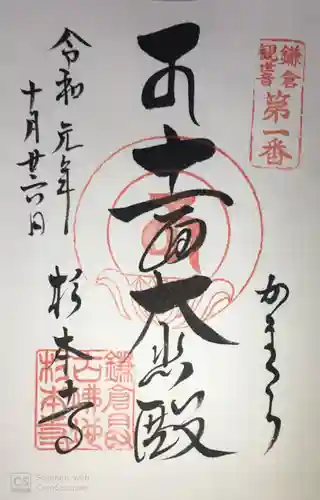 鎌倉
観世音
第一番
かまくら
十一面大悲殿
令和元年
十月廿六日
杉本寺
Scanned with
CamScanner